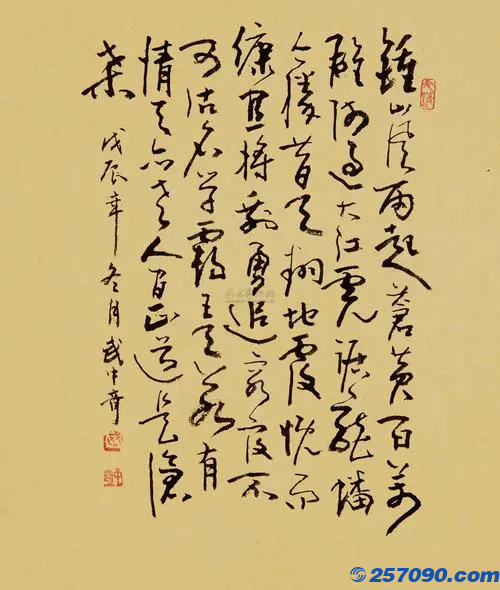 鍾山风雨起蒼黄百萬
雄师过大江虎踞龍蟠
今勝昔天翻地覆慨而
慷宜将剩勇追穷寇不
可沽名学霸王天若有
情天亦老人间正道是滄
桒
戊辰年冬月武中奇
257090.com